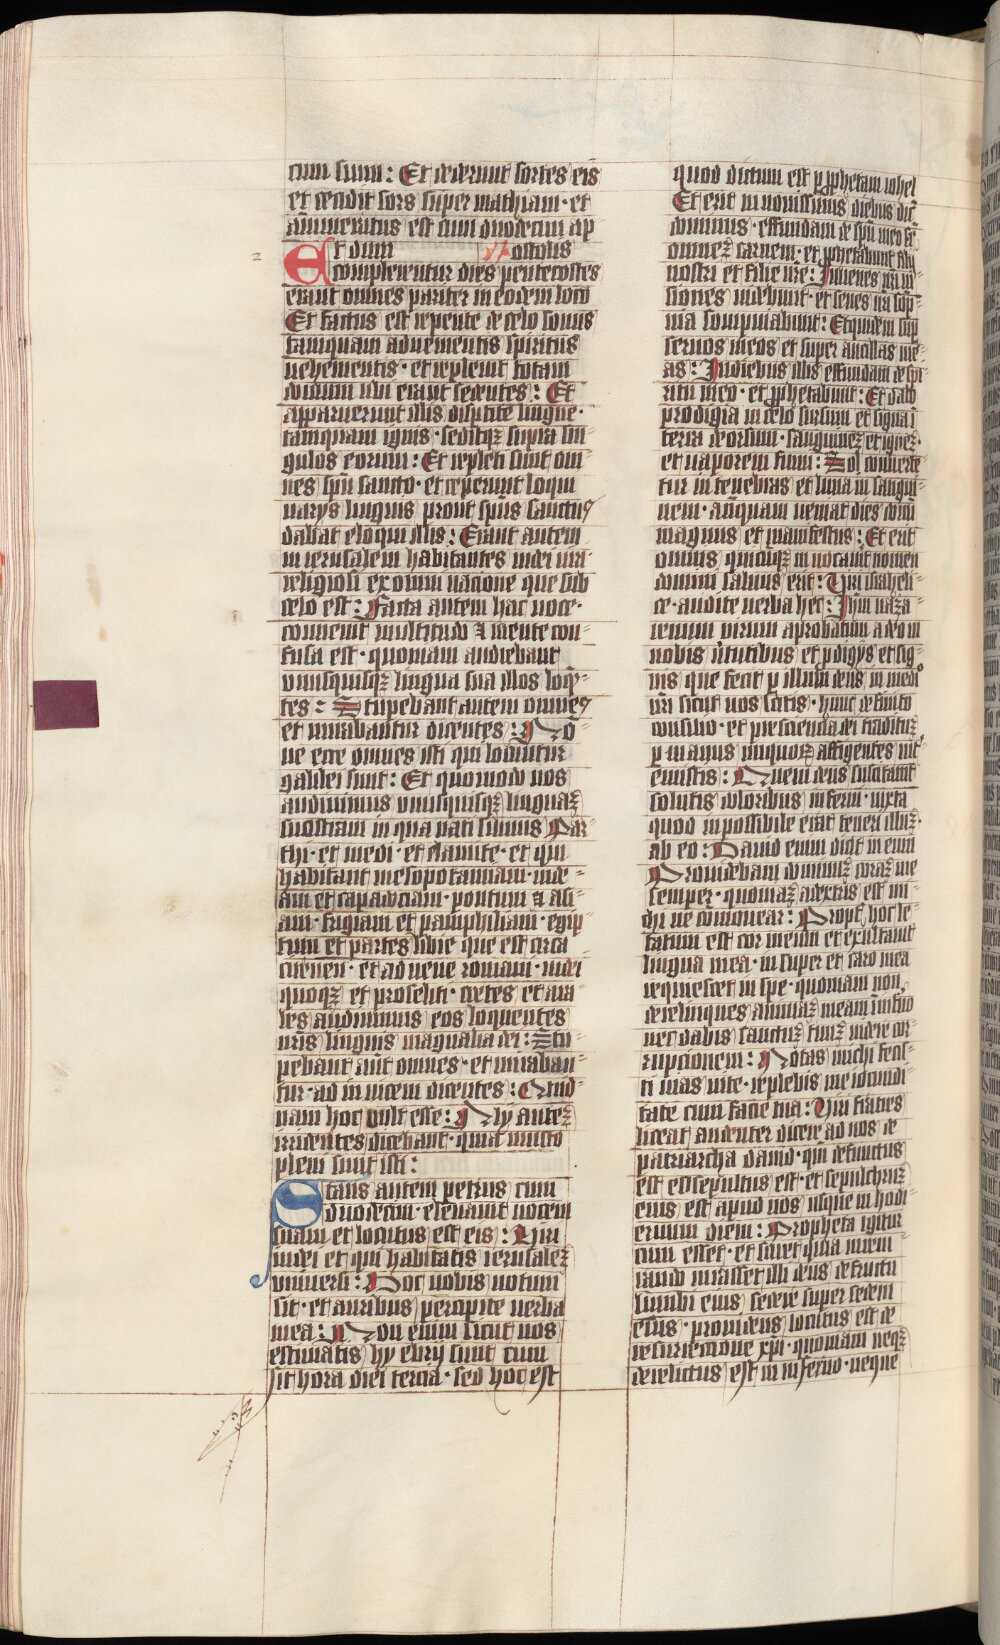 cum suum: Et dederunt sortes eis
et cecidit sors super mathiam· et
ānumeratus est cum duodecim ap
ostolis
2
Et dum
complerentur dies pentecostes
erant omnes pariter in eodem loco
Et factus est repente de celo sonus
tamquam advenientis spiritus
vehementis· et replevit totam
domum ubi erant sedentes: Et
apparuerunt illis dispertite lingue·
tamquam ignis· seditqꝫ supra sin
gulos eorum: Et repleti sunt om
nes spū sancto· et ceperunt loqui
varys linguis prout spūs sanctus
dabat eloqui illis: Erant autem
in ierusalem habitantes iudei viri
religiosi ex omni nacione que sub
celo est: Facta autem hac voce·
convenit multitudo ⁊ mente con
fusa est· quoniam audiebant
unusquisqꝫ lingua sua illos loqn
tes: Stupebant autem omnes
et mirabantur dicentes: No
ne ecce omnes isti qui locuntur
galilei sunt: Et quomodo nos
audivimus unusquisqꝫ linguaꝫ
nostram in qua nati sumus Par
thi· et medi· et elamite· et qui
habitant mesopotamiam· iude
am et capadociam· pontum ⁊ asi
am· frigiam et pamphiliam· egip
tum et partes libie que est circa
cirenen· et advene romani· iudei
quoqꝫ et proseliti· cretes et ara
bes audivimus eos loquentes
nr̄is linguis magnalia dei: Stu
pebant aūt omnes· et miraban
tur· ad invicem dicentes: Quid
nam hoc vult esse: Alij auteꝫ
irridentes dicebant· quia musto
pleni sunt isti:
Stans autem petrus cum
duodecim· elevavit vocem
suam et locutus est eis: Viri
iudei et qui habitatis ierusaleꝫ
universi: Hoc vobis notum
sit· et auribus percipite verba
mea: Non enim sicut vos
estimatis hy ebrij sunt cum
sit hora diei tercia· sed hoc est
quod dictum est p̲ p̲phetam iohel
Et erit in novissimis diebus dīc
dominus· effundam de spū meo sr̄
omneꝫ carnem· et p̲phetabunt filij
vestri et filie vr̄e: Iuvenes vr̄i vi
siones videbunt· et senes vr̄i som
nia sompniabunt: Et quidem sup̲
servos meos et super ancillas me
as: In diebus illis effundam de spi
ritu meo· et p̲phetabunt: Et dabo
prodigia in celo sursum et signa ī
terra deorsum· sanguineꝫ et igneꝫ·
et vaporem fumi: Sol converte
tur in tenebras et luna in sangui
nem· anq̄uam veniat dies domī
magnus et manifestus: Et erit
omnis quicuqꝫ invocavit nomen
domini salvus erit: Viri israheli
te· audite verba hec: Ihm naza
renum virum aprobatum a deo in
vobis v̄tutibus et p̲digijs et sig
nis que fecit p̲ illum deus in medio
vr̄i sicut vos scitis· hunc definito
consilio· et prescientia dei tradituꝫ
p̲ manus iniquoꝝ affigentes int̄
emistis: Quem deus suscitavit
solutis doloribus inferni· iuxta
quod inpossibile erat teneri illuꝫ·
ab eo: David enim dicit in eum
Providebam dominuꝫ coraꝫ me
semper· quoniaꝫ a dextris est mi
chi ne comovear: Propt̄ hoc le
tatum est cor meum et exultavit
lingua mea· insuper et caro mea
requiescet in spe· quoniam non
derelinques animaꝫ meam ī inferno
nec dabis sanctuꝫ tuuꝫ videre cor
rupcionem: Notas michi fecis
ti vias vite· replebis me iocundi
tate cum facie tua: Viri fratres
liceat audenter dicere ad vos de
patriarcha david· qui defunctus
est et sepultus est· et sepulchruꝫ
eius est apud nos usque in hodi
ernum diem: Propheta igitur
cum esset· et sciret quia iureiu
rando iurasset illi deus de fructu
lumbi eius sedere super sedem
eius· providens locutus est de
resurrectione xp̄i· quoniam neqꝫ
derelictus est in inferno· neque